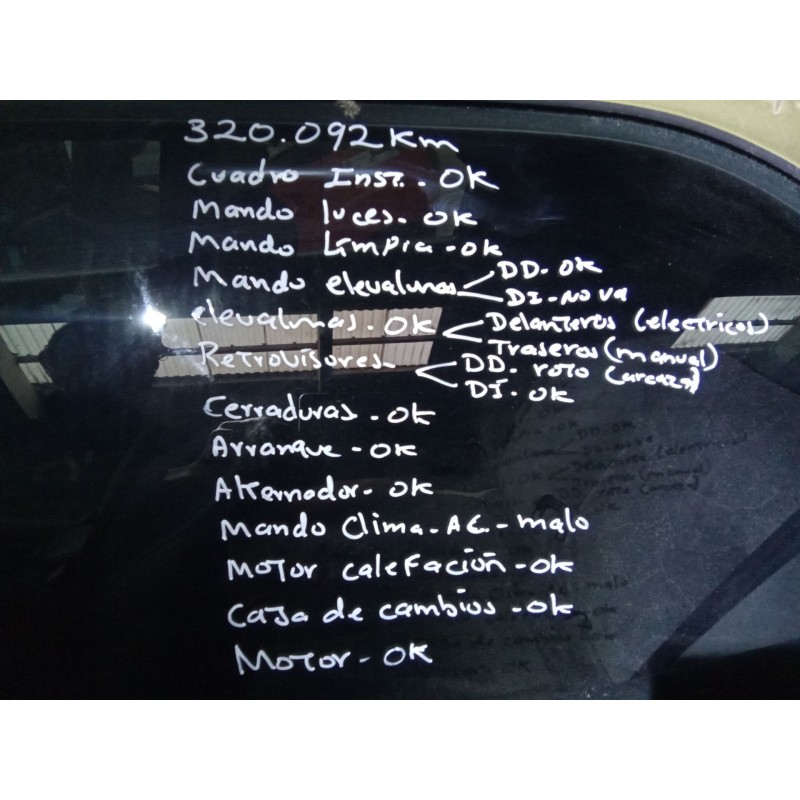 320.092Km
Cuadro Inst. - OK
Mando luces - OK
Mando limpia - OK
Mando elevalunas DD - OK
DI - No va
elevalunas - OK Delanteros (electricos)
Traseros (manual)
Retrovisores - DD - roto (arcasa)
DI - OK
Cerraduras - OK
Arranque - OK
Alternador - OK
Mando Clima - AC - malo
Motor calefación - OK
Caja de cambios - OK
Motor - OK